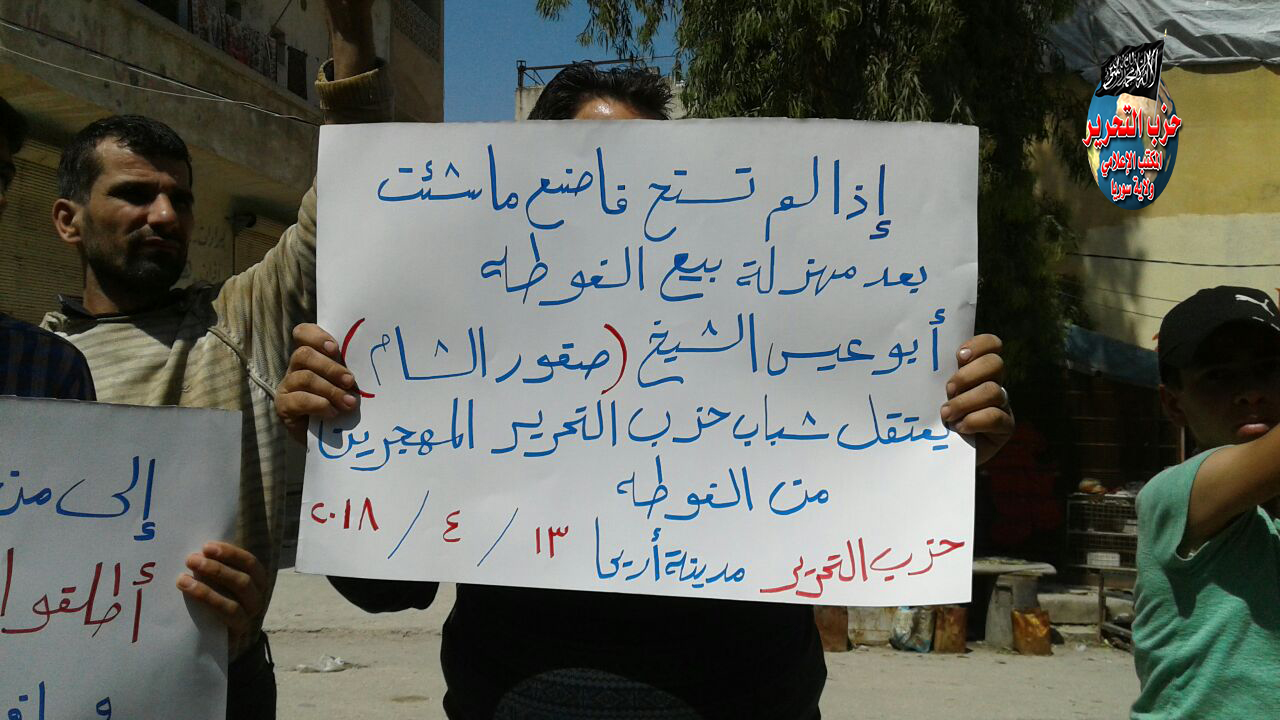 إذا لم تستح فاصنع ما شئت
بعد مهزلة بيع الغوطه
أبو عيس الشيخ (صقور الشام)
يعتقل شباب حزب التحرير المهجرين
من الغوطه
حزب التحرير مدينة أريحا ١٣ / ٤ / ٢٠١٨
إلى من
أطلقوا ا
حزب التحرير
المكتب الإعلامي
ولاية سوريا